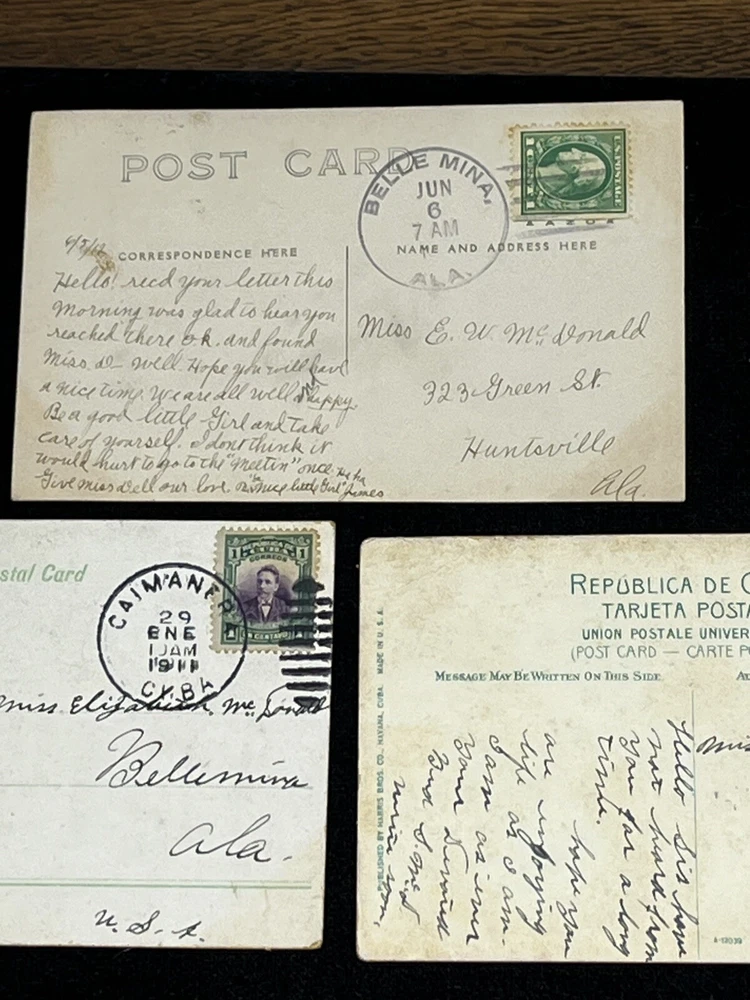 POST CARD
BELLE MINA,
JUN
6
7 AM
ALA.
U.S. POSTAGE
CORRESPONDENCE HERE
NAME AND ADDRESS HERE
Hello! recd your letter this
Morning was glad to hear you
reached there o.k. and found
Miss D- well. Hope you will have
a nice time. We are all well & happy.
Be a good little Girl and take
care of yourself. I dont think it
would hurt to go to the "Meetin" once. Ha ha
Give miss Dell our love. nice little Girl" James
Miss E. W. McDonald
323 Green St.
Huntsville
Ala.
stal Card
CAIMANERA
29
ENE
1 AM
1911
CUBA
1 1
CORREOS
UN CENTAVO
Miss Elizabeth McDonald
Bellemina
Ala.
U. S. A.
REPÚBLICA DE C
TARJETA POSTA
UNION POSTALE UNIVER
(POST CARD — CARTE PO
MESSAGE MAY BE WRITTEN ON THIS SIDE
AD
PUBLISHED BY HARRIS BROS. CO., HAVANA, CUBA. MADE IN U. S. A.
Hello Sis have
not heard from
you for a long
time.
hope you
are enjoying
life as I am.
I am as ever
your Devoted
Bud S. McD
Miss